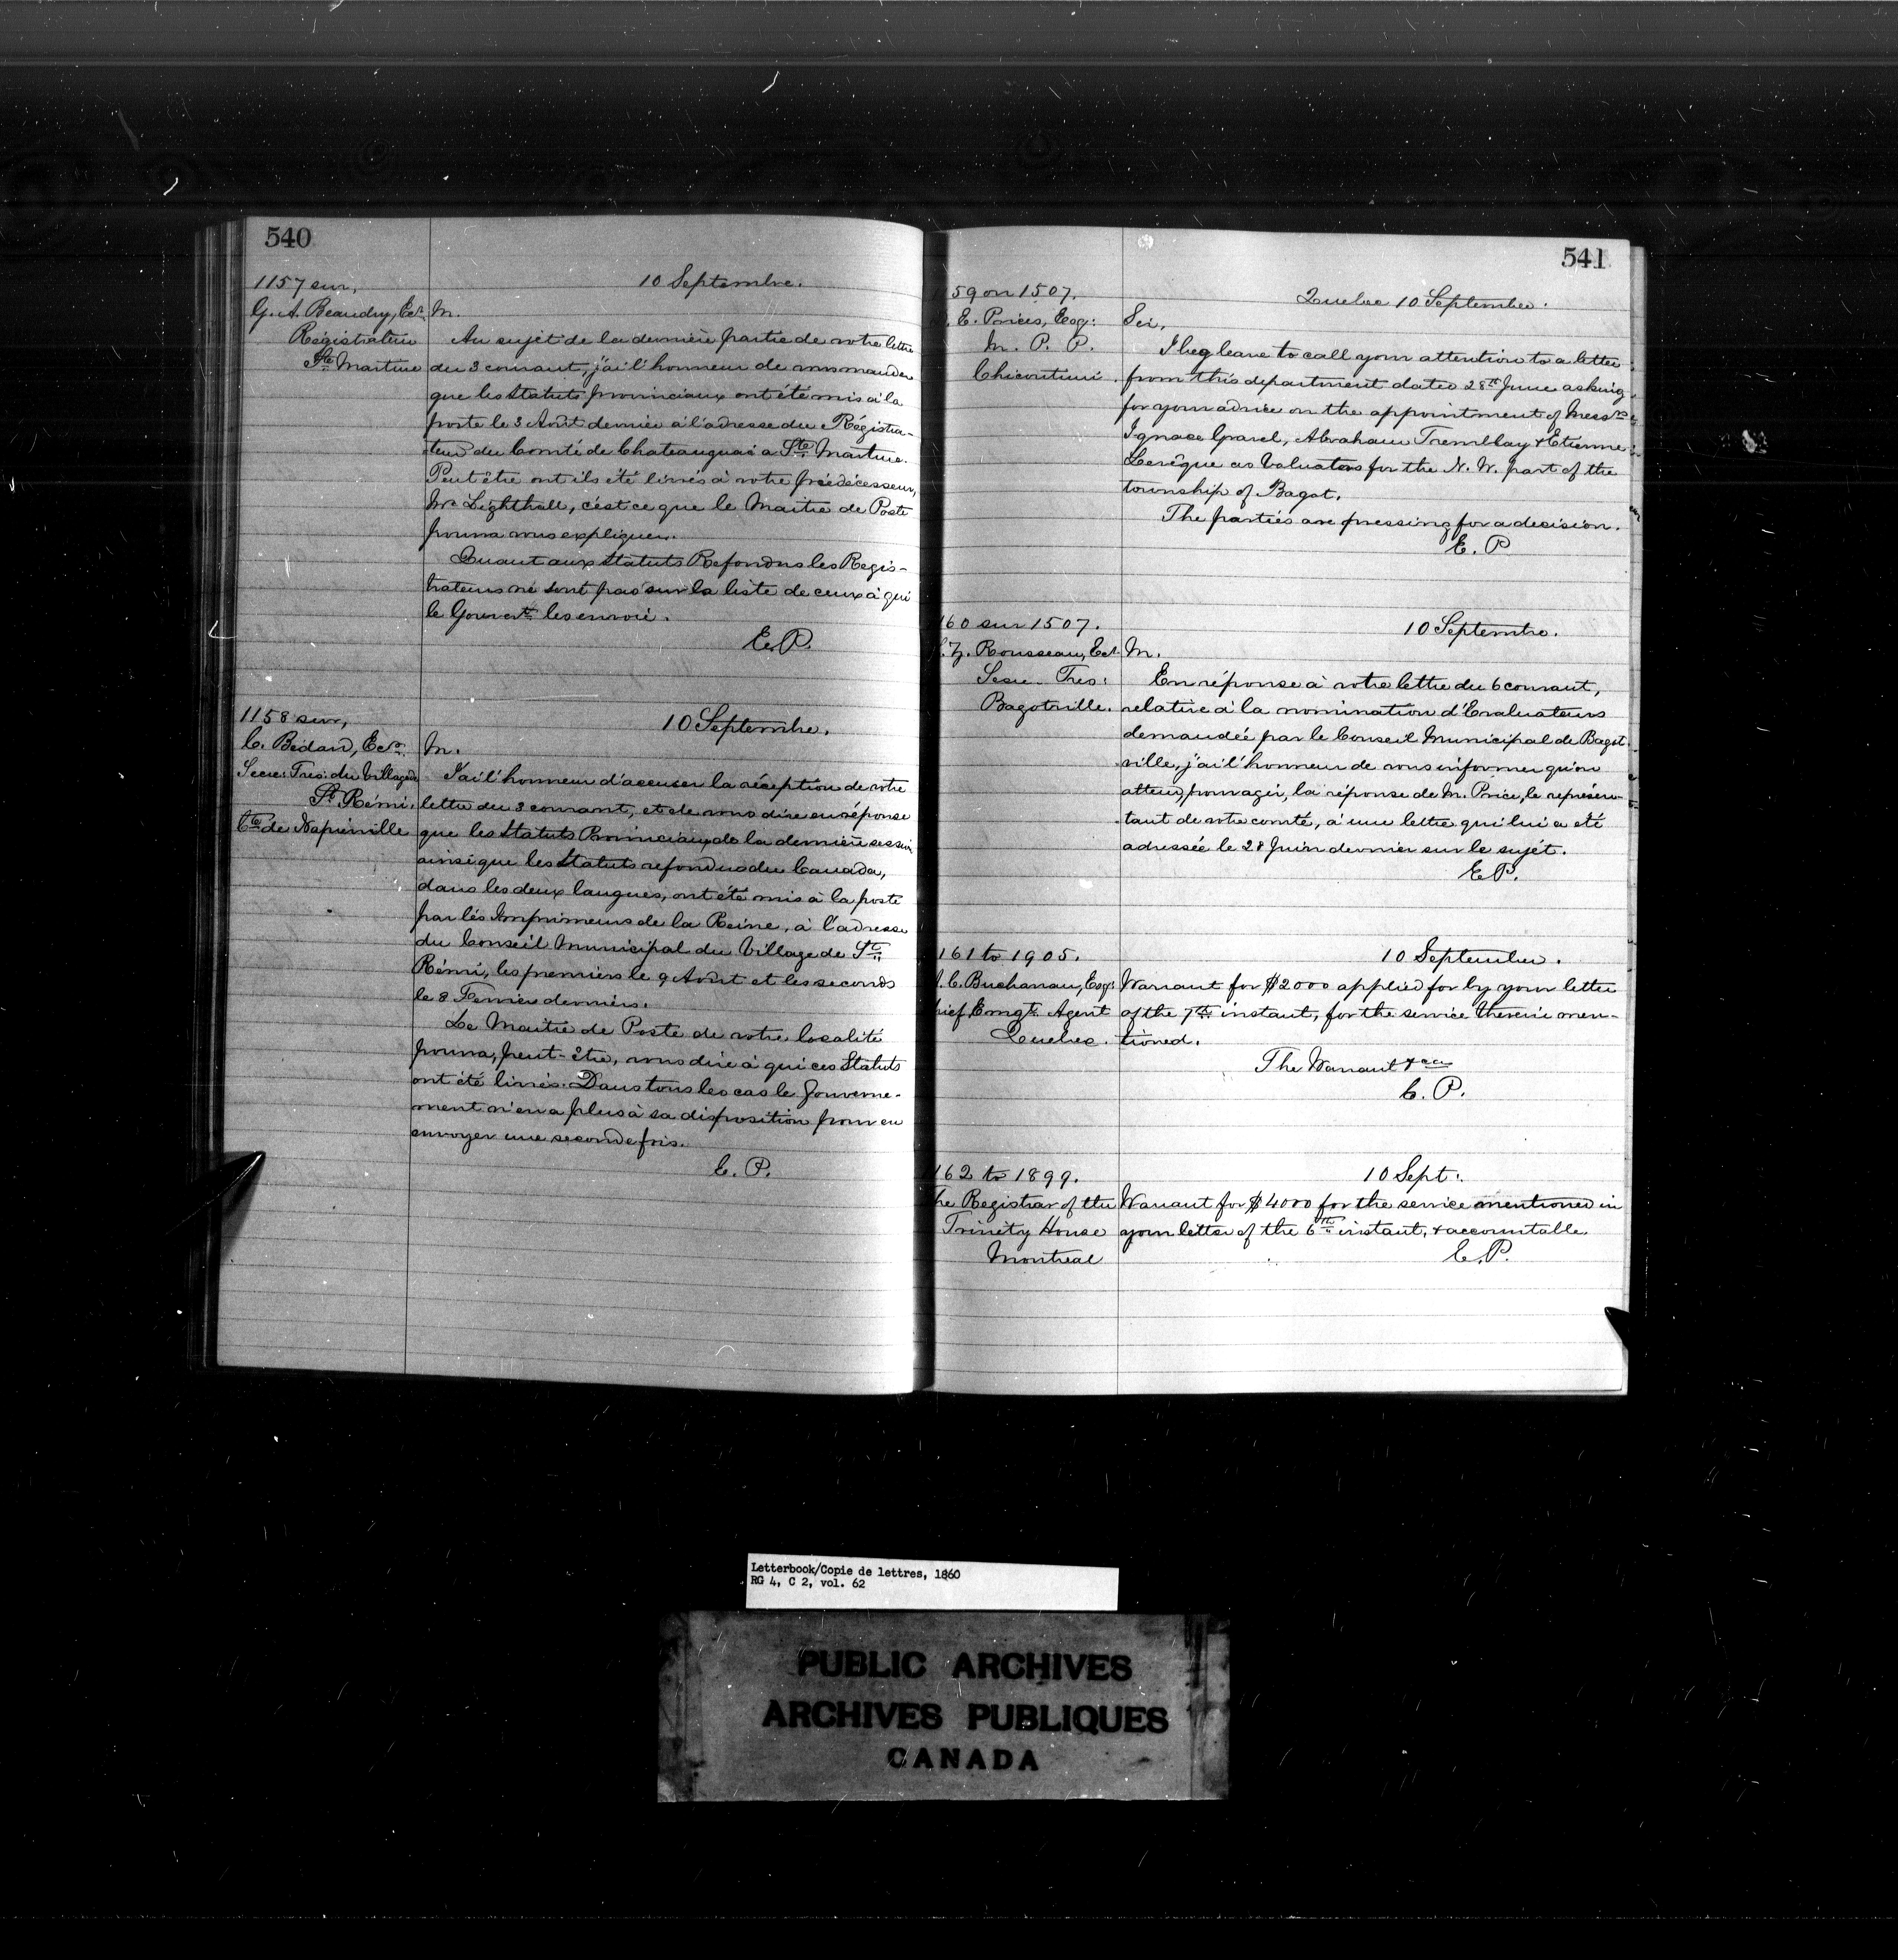 540
1157 sur,
G. A. Beaudry, Ecr.
Régistrateur
Ste Martine
10 Septembre.
M.
Au sujet de la dernière partie de votre lettre
du 3 courant, j'ai l'honneur de vous mander
que les Statuts provinciaux ont été mis à la
poste le 3 Août dernier à l'adresse du Régistra-
teur du Comté de Chateauguai à Ste Martine.
Peut être ont ils été livrés à votre prédécesseur,
Mr. Lighthall, c'est ce que le Maitre de Poste
pourra vous expliquer.
Quant aux Statuts Refondus les Regis-
trateurs ne sont pas sur la liste de ceux à qui
le Gouvernt. les envoie.
E. P.
1158 sur,
C. Bédard, Ecr.
Secre: Tres: du Village de
St Rémi,
Cte de Napierville
10 Septembre.
M.
J'ai l'honneur d'accuser la réception de votre
lettre du 3 courant, et de vous dire en réponse
que les Statuts Provinciaux de la dernière session
ainsi que les Statuts refondus du Canada,
dans les deux langues, ont été mis à la poste
par les Imprimeurs de la Reine, à l'adresse
du Conseil Municipal du Village de St.
Rémi, les premiers le 9 Août et les seconds
le 8 Fevrier derniers.
Le Maitre de Poste de votre localité
pourra, peut-être, vous dire à qui ces Statuts
ont été livrés. Dans tous les cas le Gouverne-
ment n'en a plus à sa disposition pour en
envoyer une seconde fois.
E. P.
541
59 on 1507.
E. Price, Esq:
M. P. P.
Chicoutimi.
Quebec 10 September.
Sir,
I beg leave to call your attention to a letter
from this department dated 28th June asking
for your advice on the appointment of Messrs
Ignace Gravel, Abraham Tremblay & Etienne
Levêque as Valuators for the N. W. part of the
township of Bagot.
The parties are pressing for a decision.
E. P
160 sur 1507.
Z. Rousseau, Ecr.
Secre. Tres:
Bagotville.
10 Septembre.
M.
En réponse à votre lettre du 6 courant,
relative à la nomination d'Evaluateurs
demandée par le Conseil Municipal de Bagot-
ville, j'ai l'honneur de vous informer qu'on
attend, pour agir, la réponse de M. Price, le représen-
tant de votre comté, à une lettre qui lui a été
adressée le 28 Juin dernier sur le sujet.
E. P.
161 to 1905.
C. Buchanan, Esq:
hief Emigt. Agent
Quebec.
10 September.
Warrant for $2000 applied for by your letter
of the 7th instant, for the service therein men-
tioned.
The Warrant &ca
E. P.
162 to 1899.
he Registrar of the
Trinity House
Montreal
10 Sept:
Warrant for $4000 for the service mentioned in
your letter of the 6th instant, & accountable.
E. P.
Letterbook/Copie de lettres, 1860
RG 4, C 2, vol. 62
PUBLIC ARCHIVES
ARCHIVES PUBLIQUES
CANADA